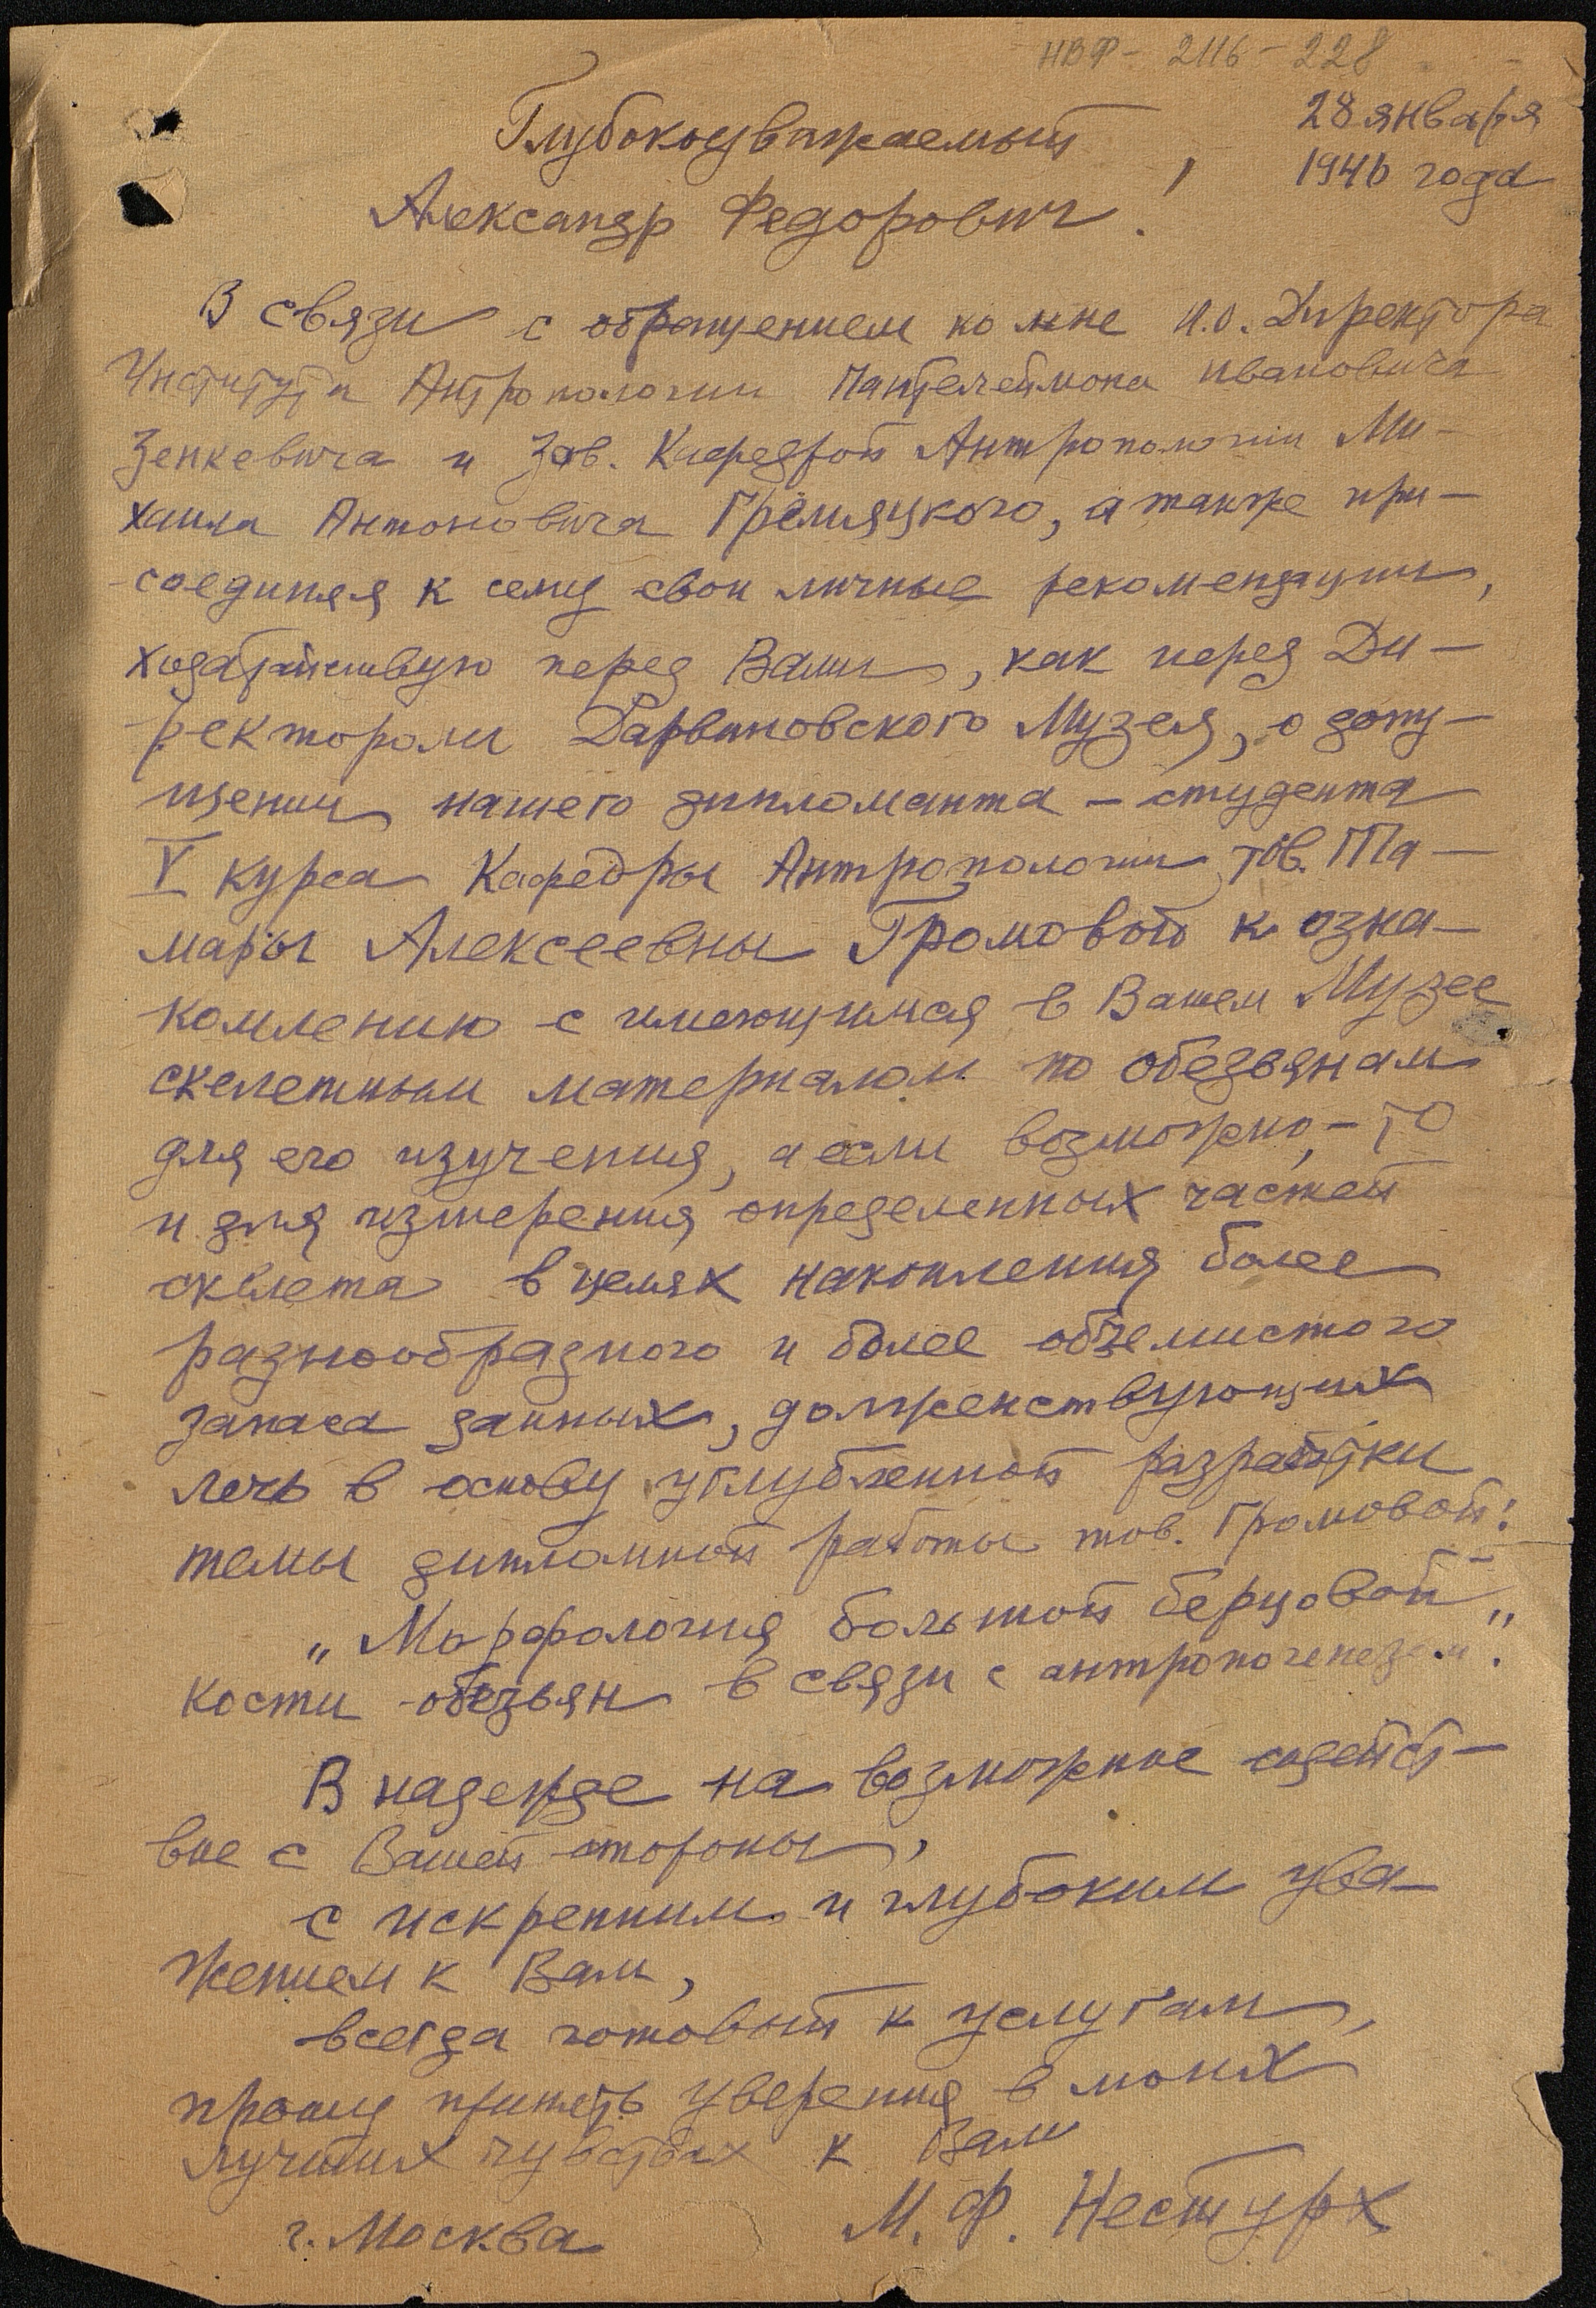 НВФ - 2116 - 228
28 января
1946 года
Глубокоуважаемый
Александр Федорович!
В связи с обращением ко мне и.о. Директора
Института Антропологии Пантелеймона Ивановича
Зенкевича и Зав. Кафедрой Антропологии Ми-
хаила Антоновича Гремяцкого, а также при-
соединяя к сему свои личные рекомендации,
ходатайствую перед Вами, как перед Ди-
ректором Дарвиновского Музея, о допу-
щении нашего дипломанта - студента
V курса Кафедры Антропологии тов. Та-
мары Алексеевны Громовой к озна-
комлению с имеющимся в Вашем Музее
скелетным материалом по обезьянам
для его изучения, а если возможно, - то
и для измерения определенных частей
скелета в целях накопления более
разнообразного и более объемистого
запаса данных, долженствующих
лечь в основу углубленной разработки
темы дипломной работы тов. Громовой:
„Морфология большой берцовой
кости обезьян в связи с антропогенезом".
В надежде на возможное содейст-
вие с Вашей стороны,
с искренним и глубоким ува-
жением к Вам,
всегда готовый к услугам,
прошу принять уверения в моих
лучших чувствах к Вам
М. Ф. Нестурх
г. Москва